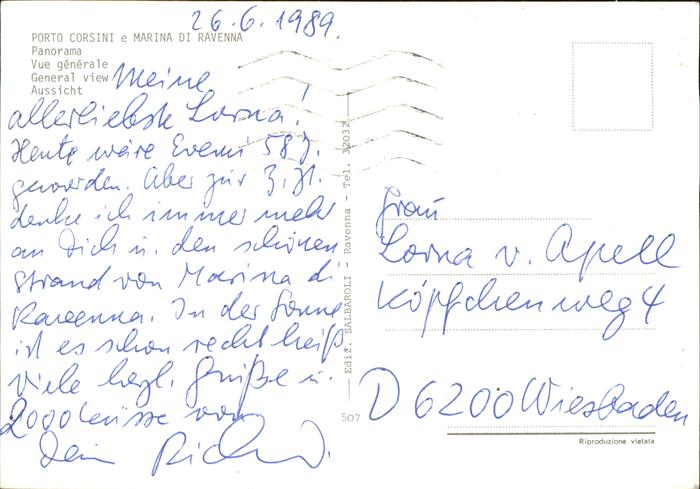 26.6.1989.
PORTO CORSINI e MARINA DI RAVENNA
Panorama
Vue générale
General view
Aussicht
Meine
allerliebste Lorna!
Heute wäre Evemi 58 J.
geworden. Aber zur Z. Zt.
denke ich immer mehr
an Dich u. den schönen
Strand von Marina di
Ravenna. In der Sonne
ist es schon recht heiß.
Viele herzl. Grüße u.
2000 Küsse von
Dein Richard.
Ediz. SALBAROLI - Ravenna - Tel. 32032
507
Frau
Lorna v. Apell
Köpfchenweg 4
D 6200 Wiesbaden
Riproduzione vietata